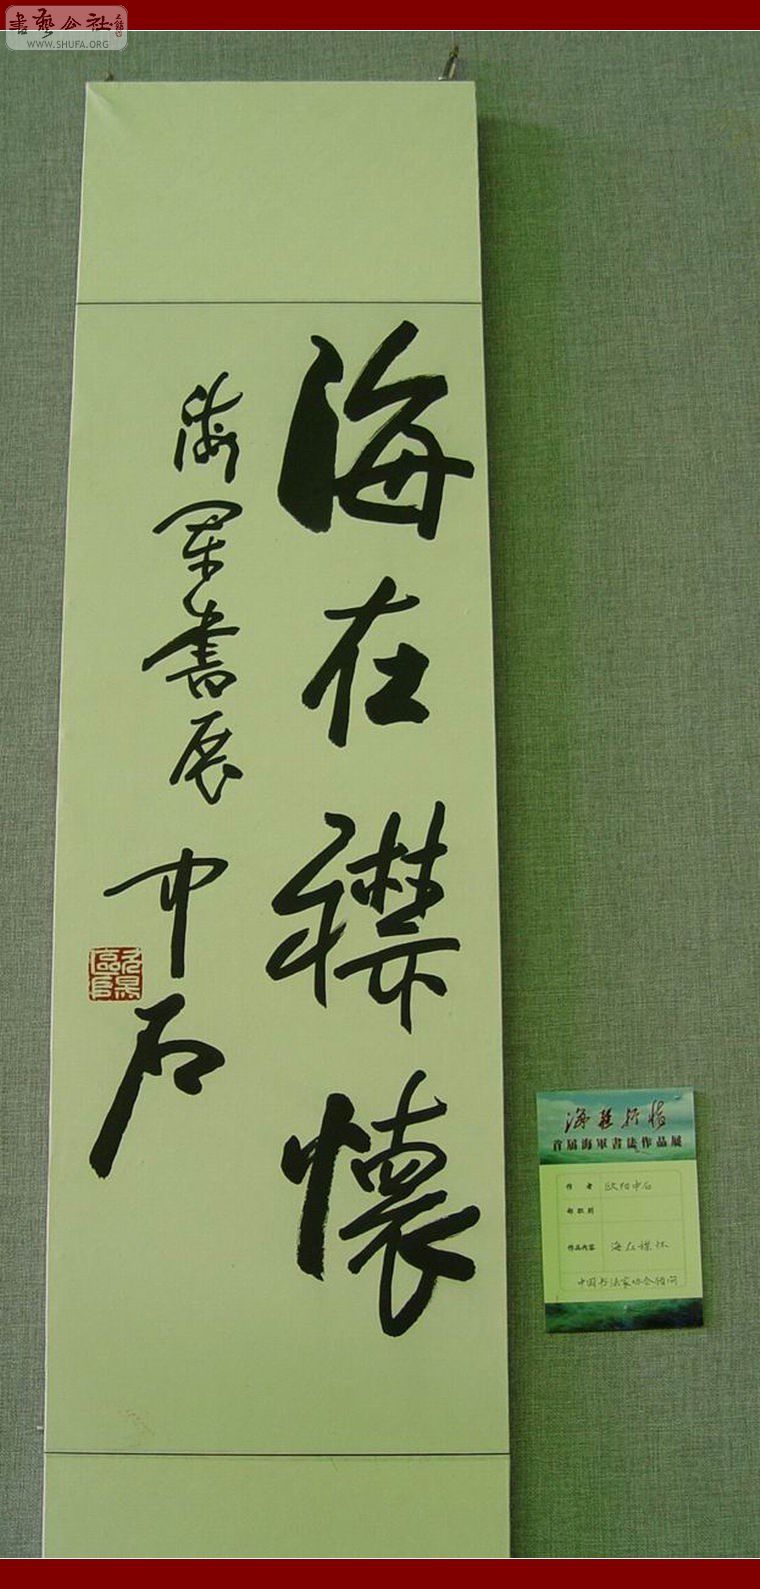 書藝公社
WWW.SHUFA.ORG
海在襟懷
海軍書展
中石
首届海軍書法作品展
作 者 欧阳中石
部职别
作品内容 海在襟怀
中国书法家协会顾问